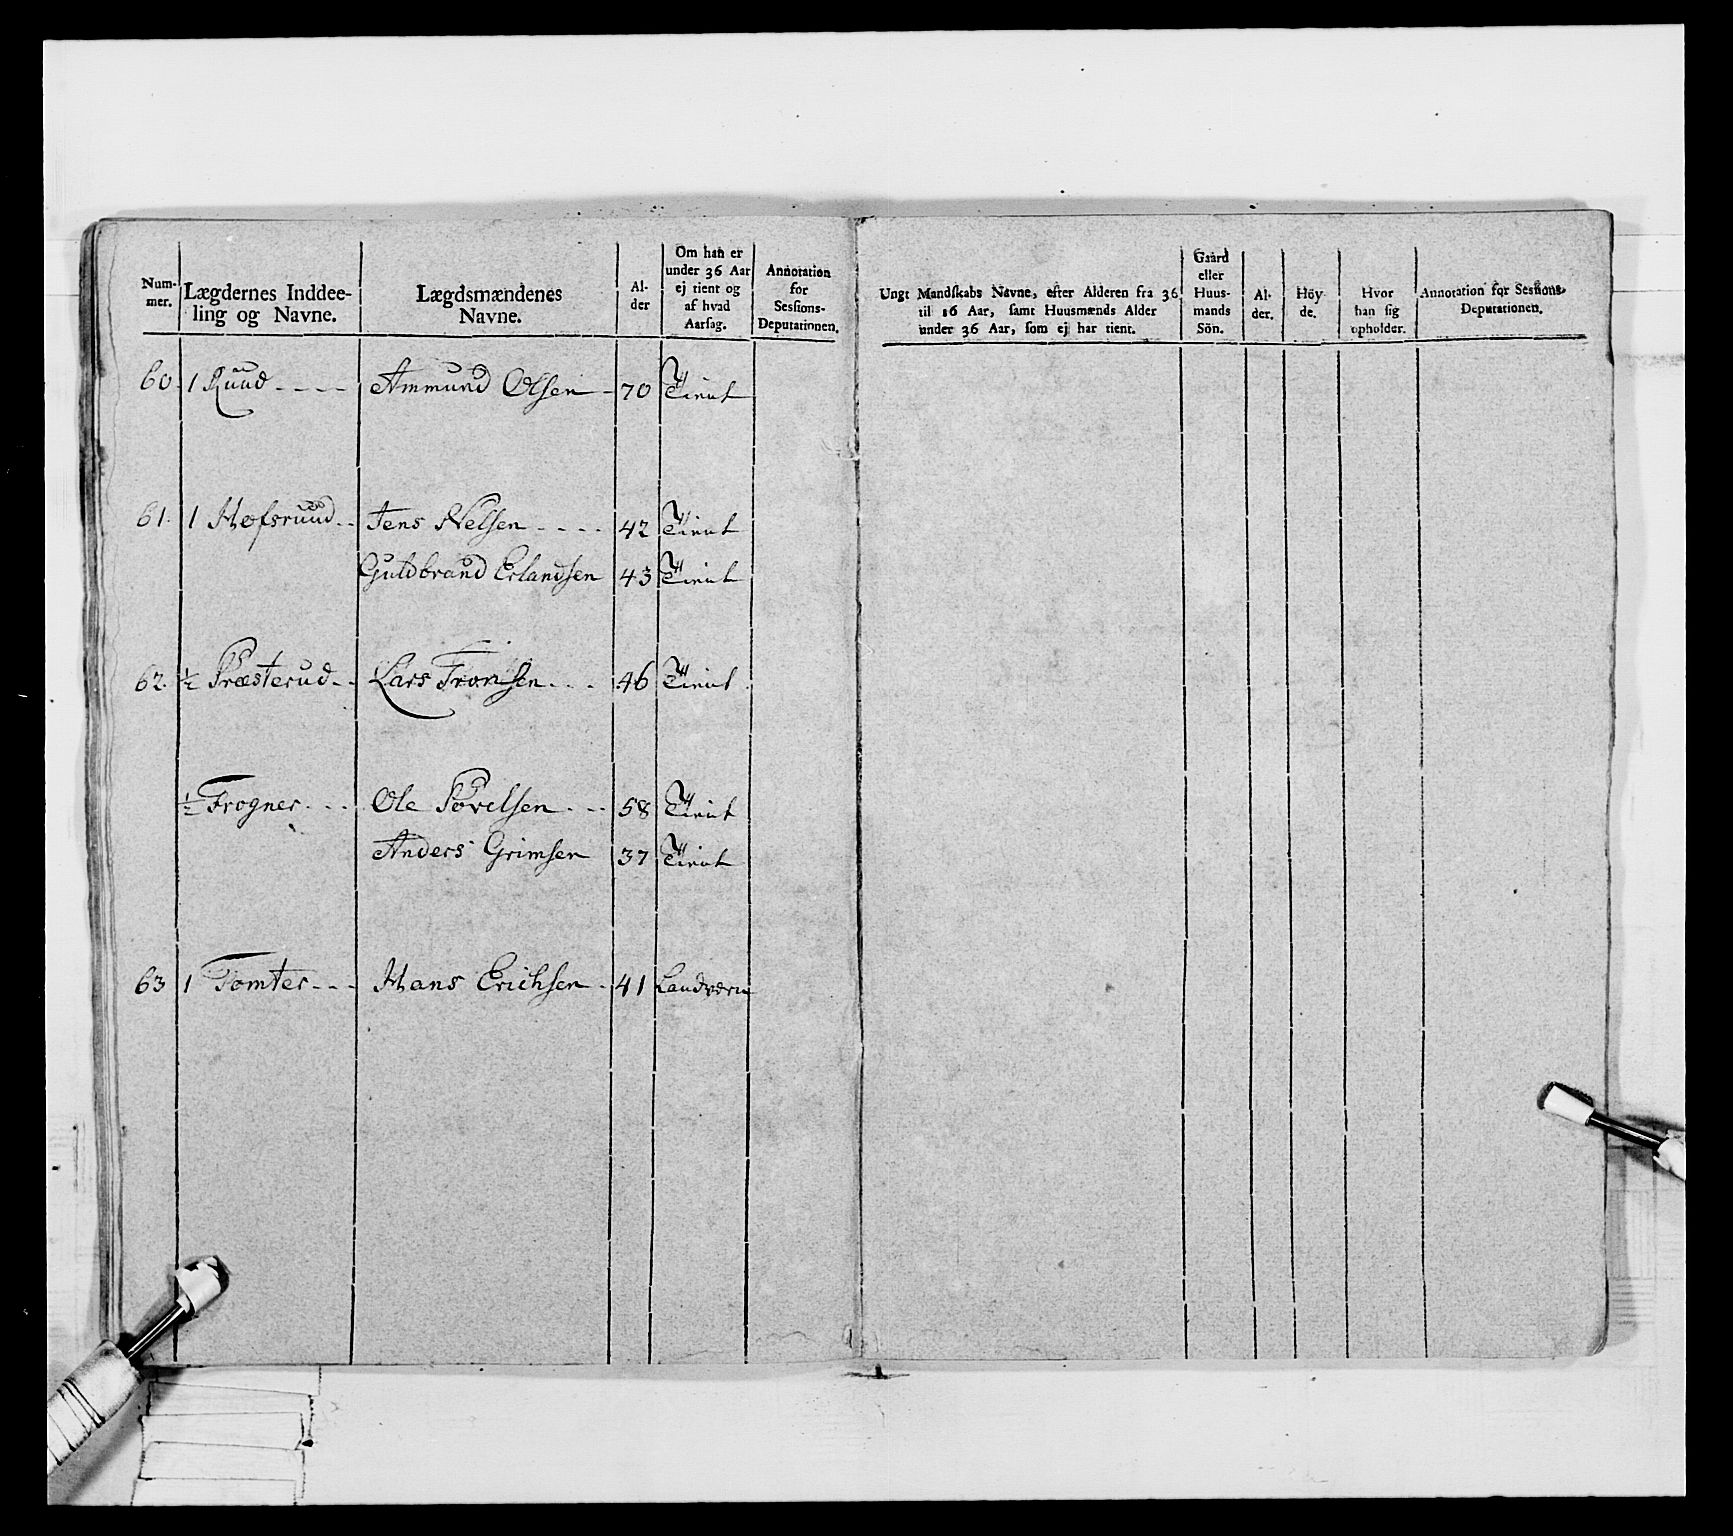 Num-
mer.
Lægdernes Inddee-
ling og Navne.
Lægdsmændenes
Navne.
Al-
der
Om han er
under 36 Aar
ej tient og
af hvad
Aarsag.
Annotation
for
Sessions-
Deputationen.
60. 1 Ruud - - - - Ammund Olsen - 70 Tient
61. 1 Hofsruud - - Jens Nelsen - - - - 42 Tient
Guldbrand Erlandsen 43 Tient
62. ½ Præsterud - - Lars Tronsen - - - 46 Tient
½ Frogner - - - Ole Povelsen - - - 58 Tient
Anders Grimsen 37 Tient
63 1 Tomter - - - Hans Erichsen - 41 Landværn
Ungt Mandskabs Navne, efter Alderen fra 36
til 16 Aar, samt Huusmænds Alder
under 36 Aar, som ej har tient.
Gaard
eller
Huus-
mands
Sön.
Al-
der.
Höy-
de.
Hvor
han sig
opholder.
Annotation for Sessions-
Deputationen.